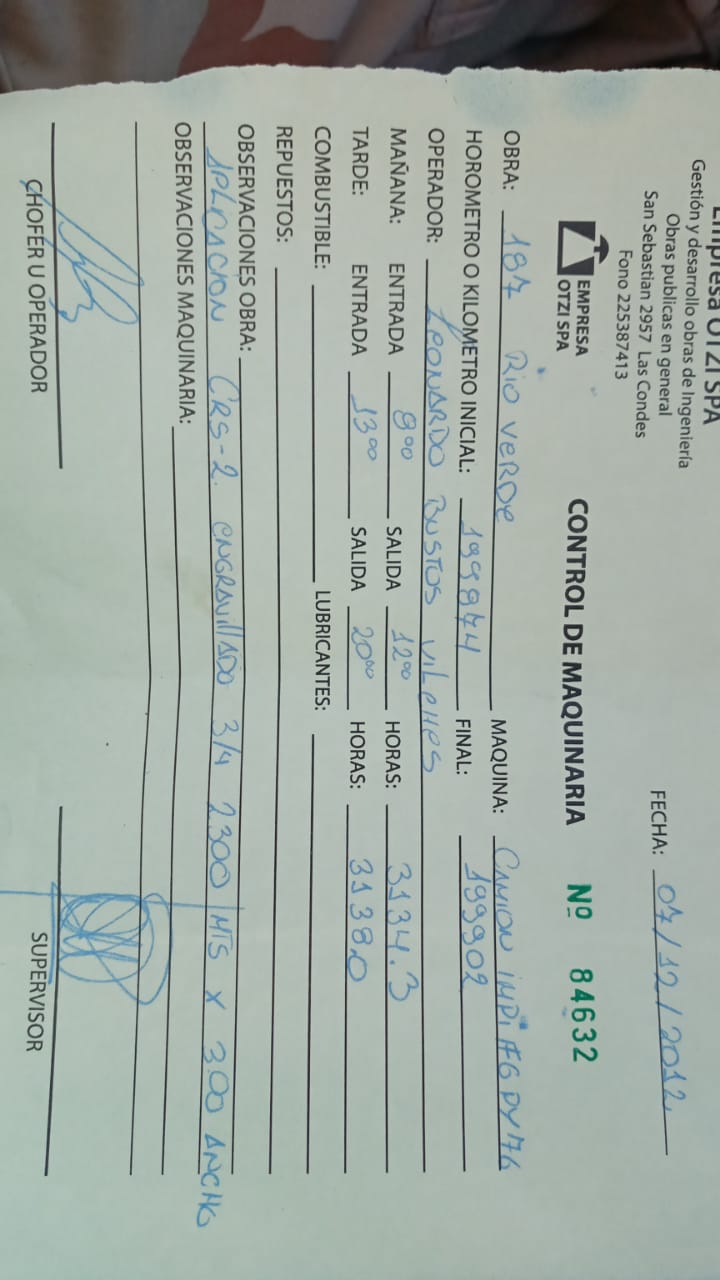 Empresa OTZI SPA
Gestión y desarrollo obras de Ingeniería
Obras publicas en general
San Sebastian 2957 Las Condes
Fono 225387413
FECHA: 07/12/2012
EMPRESA
OTZI SPA
CONTROL DE MAQUINARIA Nº 84632
OBRA: 187 Rio Verde MAQUINA: CAMION IMPI FG PY76
HOROMETRO O KILOMETRO INICIAL: 199874 FINAL: 199902
OPERADOR: Leonardo Bustos Vilches
MAÑANA: ENTRADA 8:00 SALIDA 12:00 HORAS: 3134.3
TARDE: ENTRADA 13:00 SALIDA 20:00 HORAS: 3138.0
COMBUSTIBLE: LUBRICANTES:
REPUESTOS:
OBSERVACIONES OBRA:
APLICACION CRS-2. ENGRAVILLADO 3/4 2300 MTS X 3.00 ANCHO
OBSERVACIONES MAQUINARIA:
CHOFER U OPERADOR SUPERVISOR